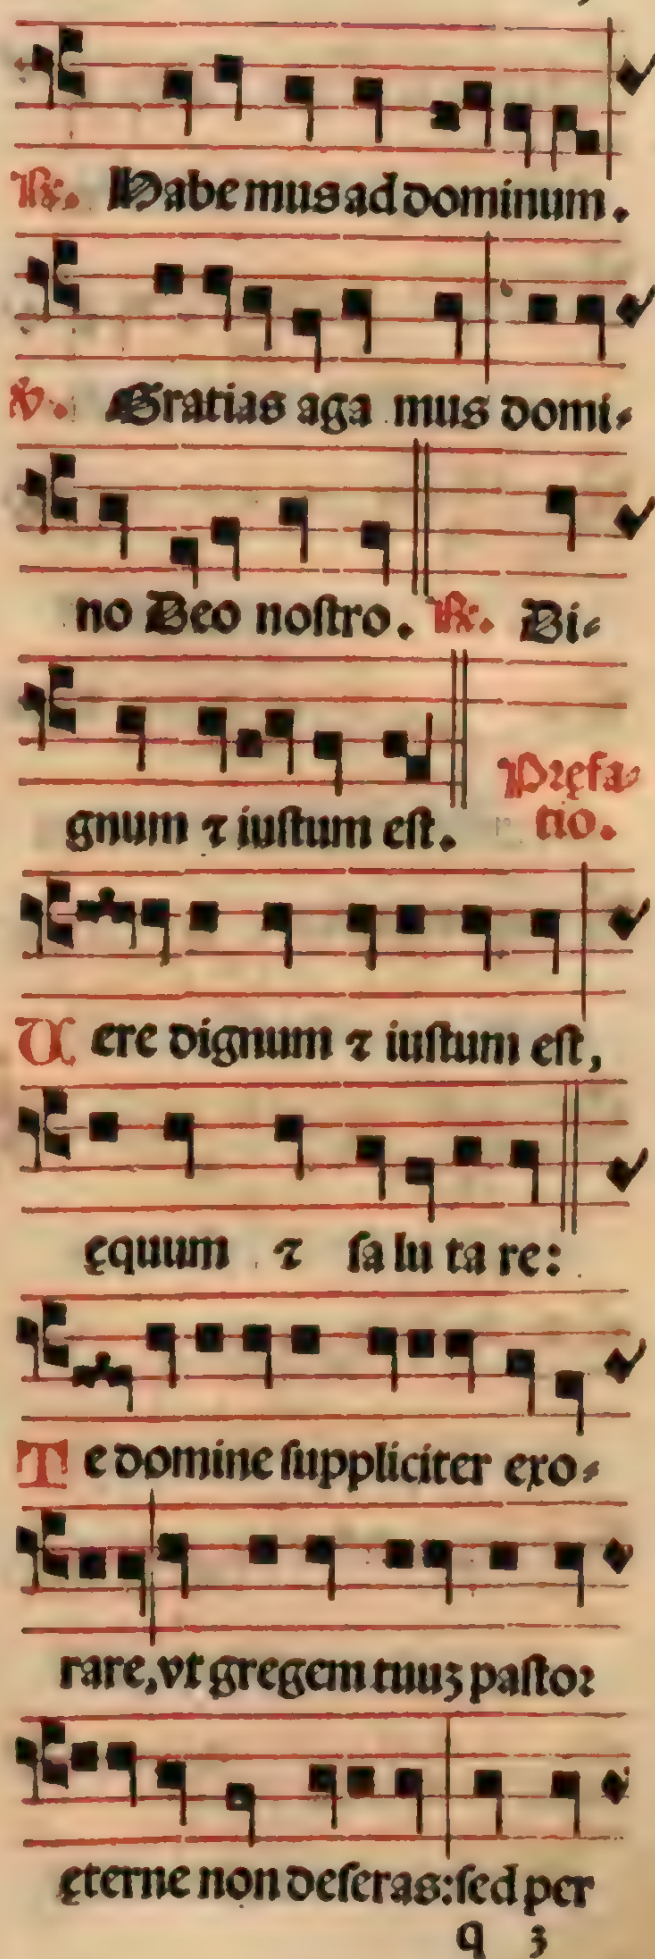 ℟. Habemus ad dominum.
℣. Gratias aga mus domi-
no Deo nostro. ℟. Di-
gnum ⁊ iustum est. Pręfa-
tio.
Uere dignum ⁊ iustum est,
ęquum ⁊ sa lu ta re:
Te domine suppliciter exo-
rare, vt gregem tuuʒ pastor
ęterne non deseras: sed per
q 3